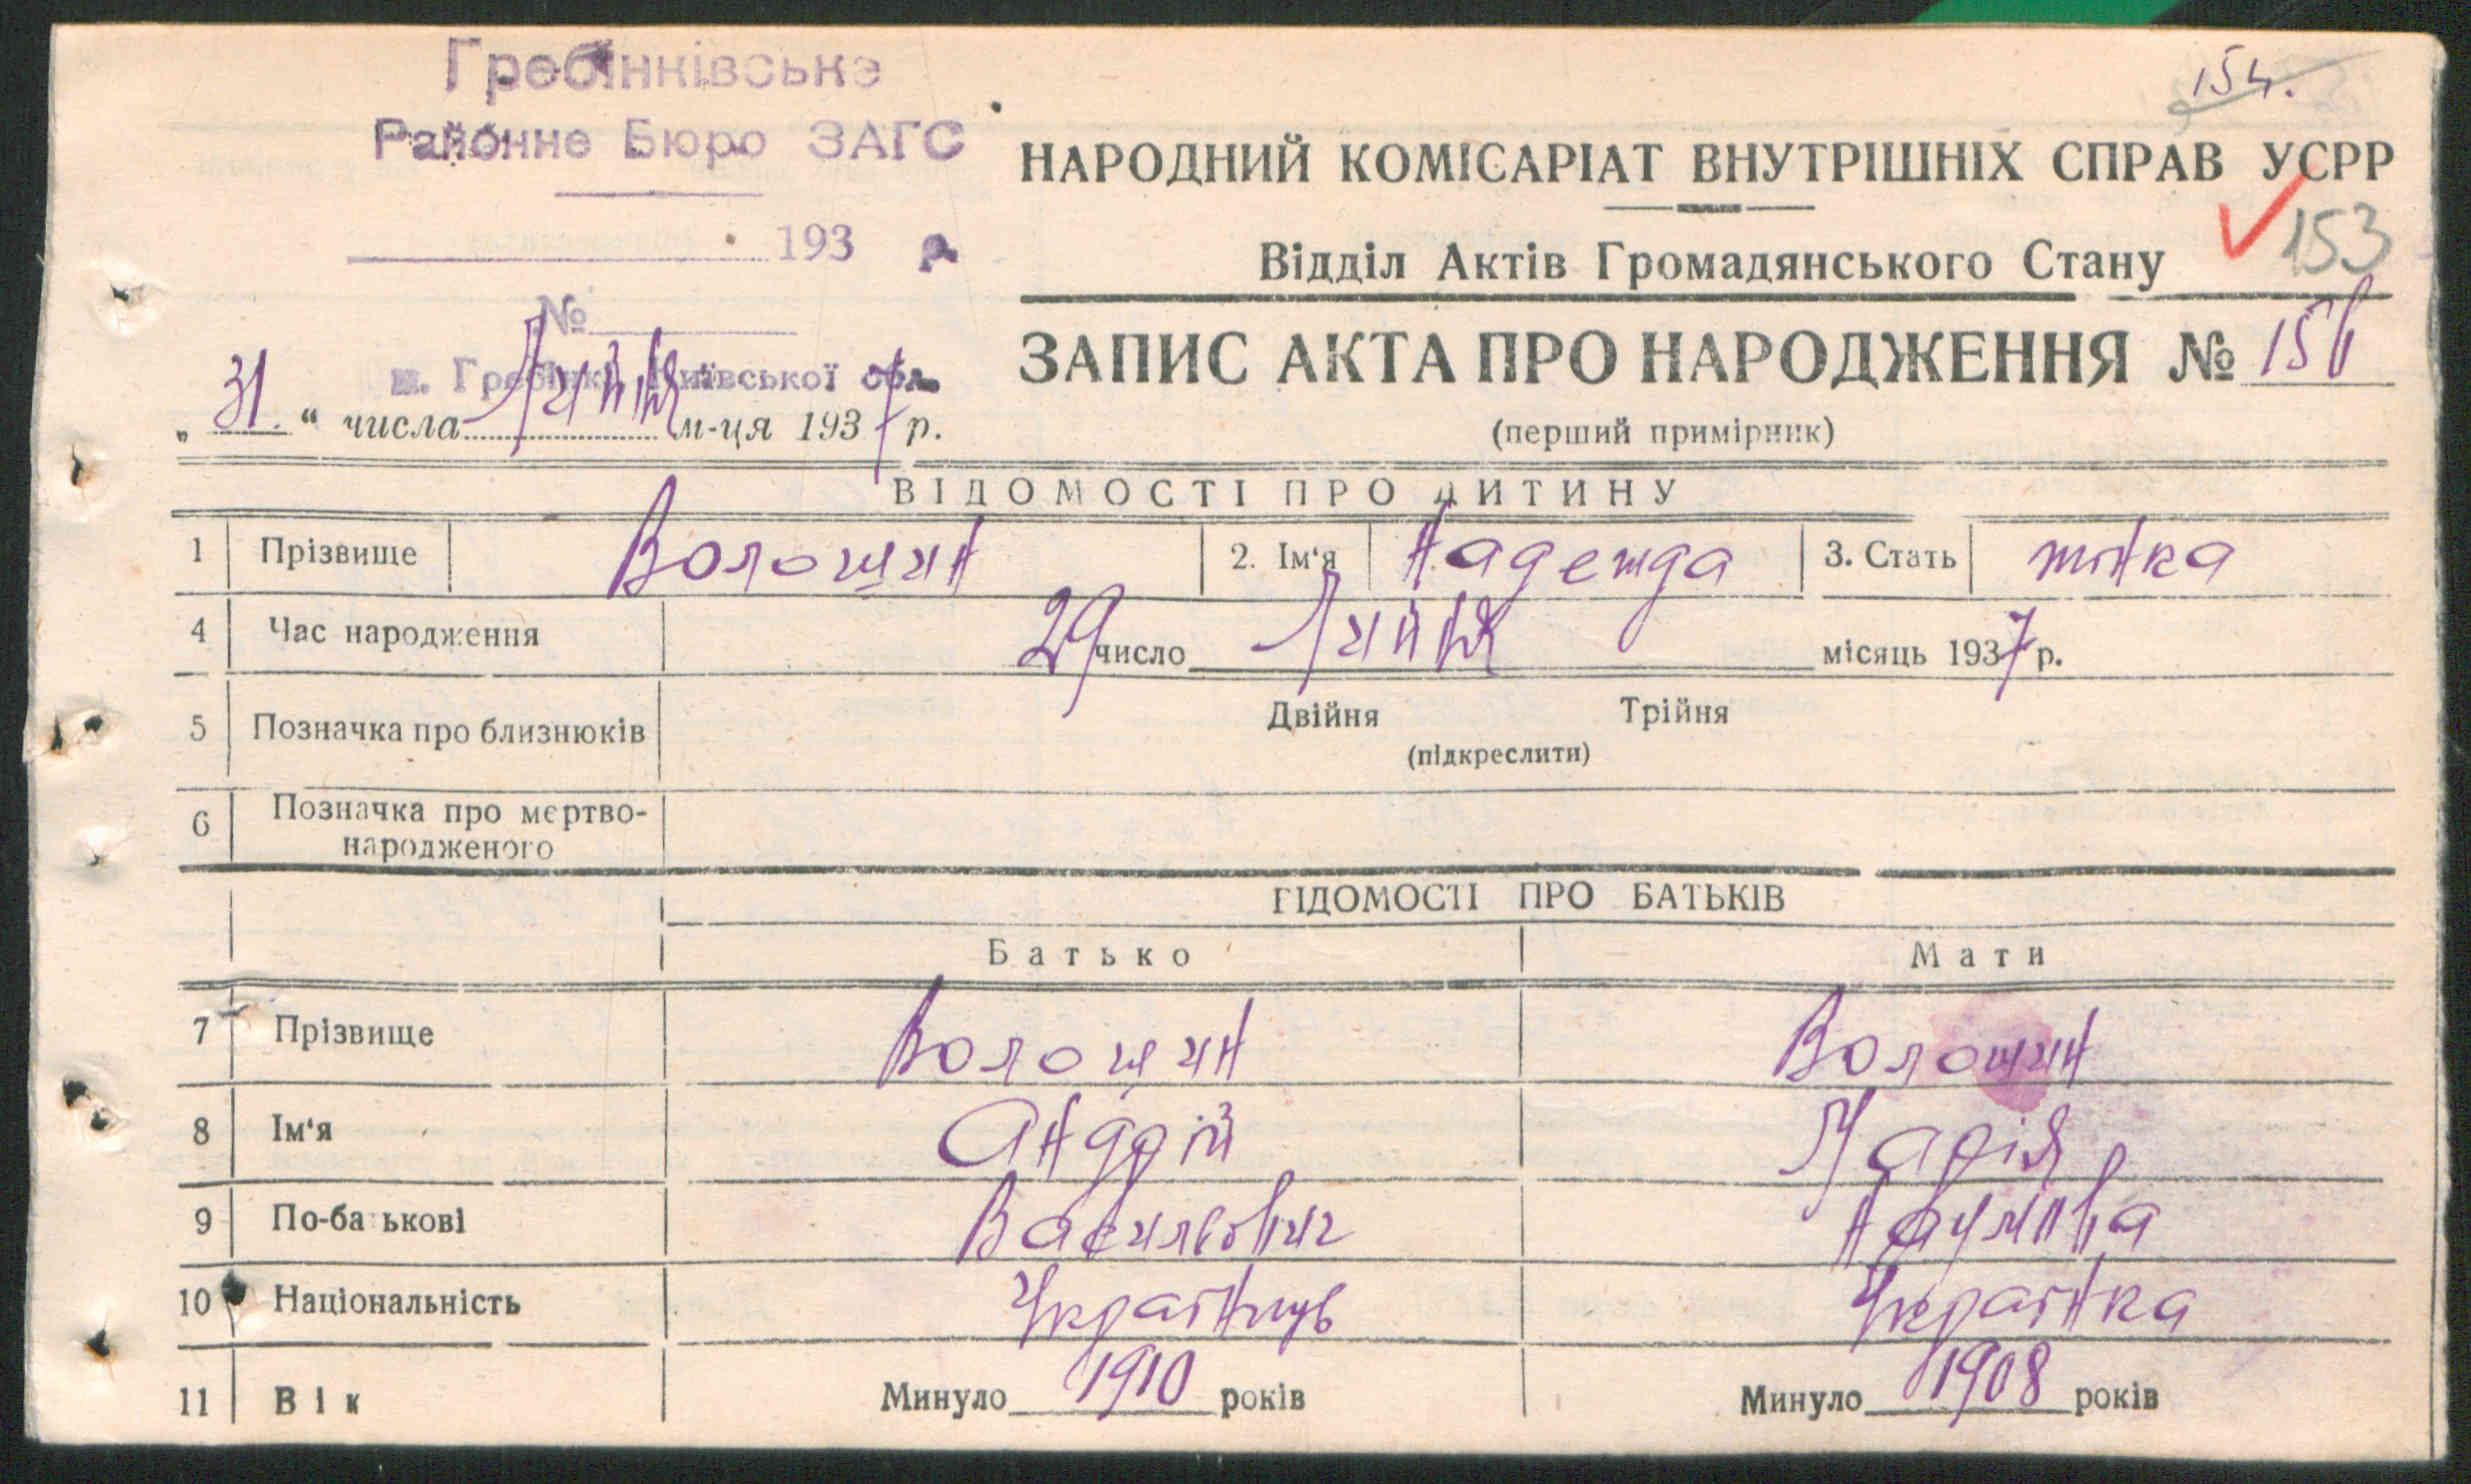 Гребінківське
Районне Бюро ЗАГС
193 р.
№
м. Гребінки Київської обл.
154.
НАРОДНИЙ КОМІСАРІАТ ВНУТРІШНІХ СПРАВ УСРР
153
Відділ Актів Громадянського Стану
ЗАПИС АКТА ПРО НАРОДЖЕННЯ №
(перший примірник)
„ 31. “ числа Липня м-ця 1937 р.
ВІДОМОСТІ ПРО ДИТИНУ
1 Прізвище Волошин 2. Ім'я Надежда 3. Стать жінка
4 Час народження 29 число Липня місяць 1937 р.
5 Позначка про близнюків Двійня Трійня
(підкреслити)
6 Позначка про мертво-
народженого
ВІДОМОСТІ ПРО БАТЬКІВ
Батько Мати
7 Прізвище Волошин Волошин
8 Ім'я Андрій Марія
9 По-батькові Васильович Наумівна
10 Національність Українць Українка
11 Вік Минуло 1910 років Минуло 1908 років